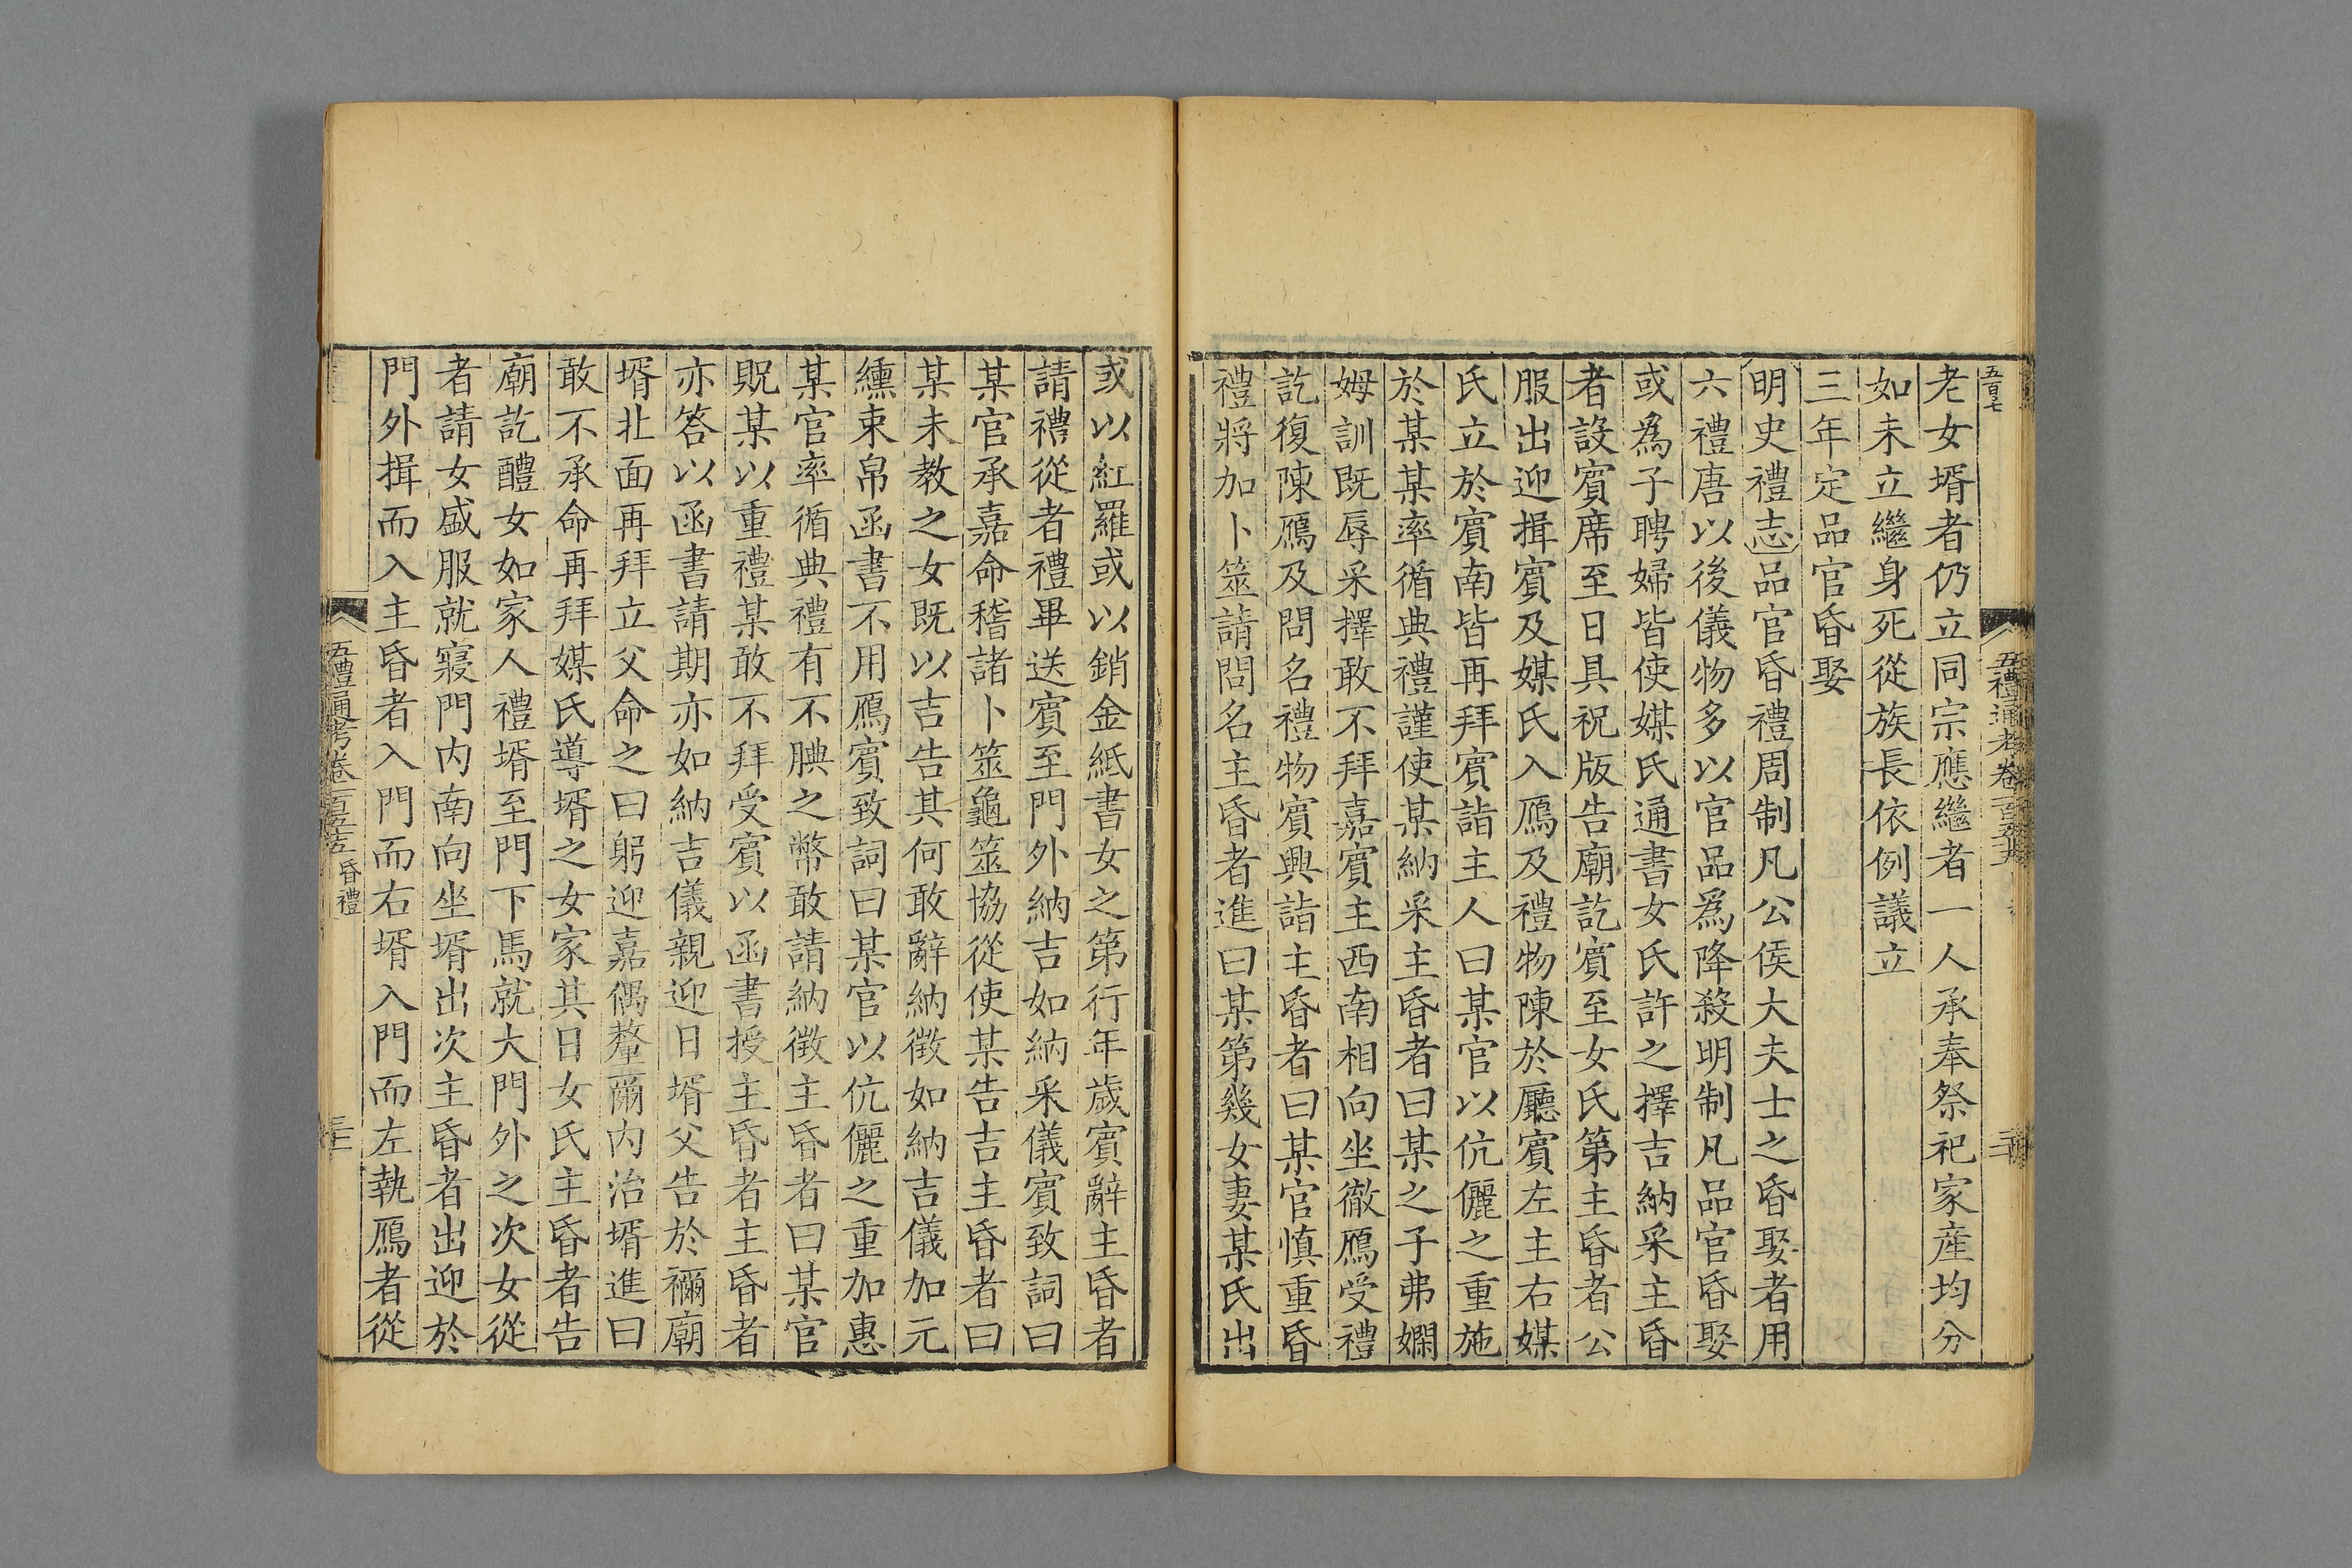 五百七
五禮通考卷一百五十五
老女壻者仍立同宗應繼者一人承奉祭祀家産均分
如未立繼身死從族長依例議立
三年定品官昏娶
明史禮志品官昏禮周制凡公侯大夫士之昏娶者用
六禮唐以後儀物多以官品爲降殺明制凡品官昏娶
或爲子聘婦皆使媒氏通書女氏許之擇吉納采主昏
者設賓席至日具祝版告廟訖賓至女氏第主昏者公
服出迎揖賓及媒氏入鴈及禮物陳於廳賓左主右媒
氏立於賓南皆再拜賓詣主人曰某官以伉儷之重施
於某某率循典禮謹使某納采主昏者曰某之子弗嫻
姆訓既辱采擇敢不拜嘉賓主西南相向坐徹鴈受禮
訖復陳鴈及問名禮物賓興詣主昏者曰某官慎重昏
禮將加卜筮請問名主昏者進曰某第幾女妻某氏出
或以紅羅或以銷金紙書女之第行年歲賓辭主昏者
請禮從者禮畢送賓至門外納吉如納采儀賓致詞曰
某官承嘉命稽諸卜筮龜筮協從使某告吉主昏者曰
某未教之女既以吉告其何敢辭納徵如納吉儀加元
纁束帛函書不用鴈賓致詞曰某官以伉儷之重加惠
某官率循典禮有不腆之幣敢請納徵主昏者曰某官
貺某以重禮某敢不拜受賓以函書授主昏者主昏者
亦答以函書請期亦如納吉儀親迎日壻父告於禰廟
壻北面再拜立父命之曰躬迎嘉偶釐爾内治壻進曰
敢不承命再拜媒氏導壻之女家其日女氏主昏者告
廟訖醴女如家人禮壻至門下馬就大門外之次女從
者請女盛服就寢門内南向坐壻出次主昏者出迎於
門外揖而入主昏者入門而右壻入門而左執鴈者從
五禮通考卷一百五十五 昏禮